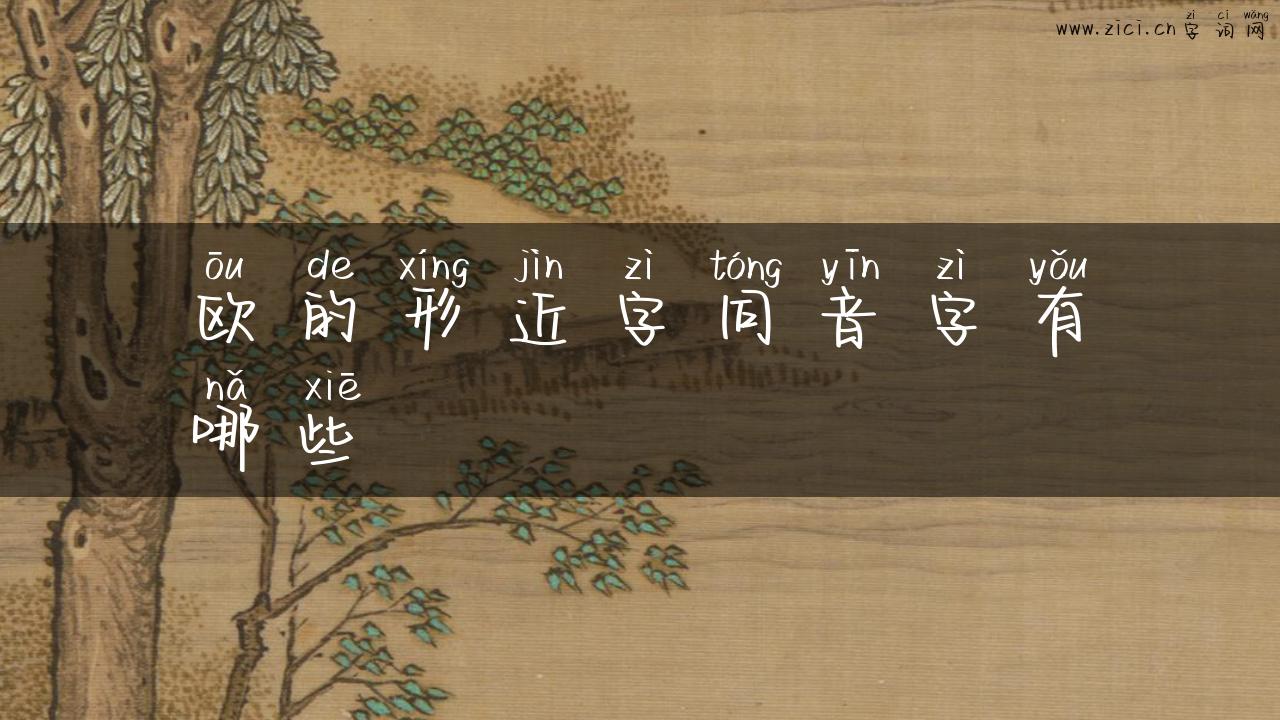 zì cí wǎng
www.zici.cn 字词网
ōu de xíng jìn zì tóng yīn zì yǒu
欧的形近字同音字有
nǎ xiē
哪些